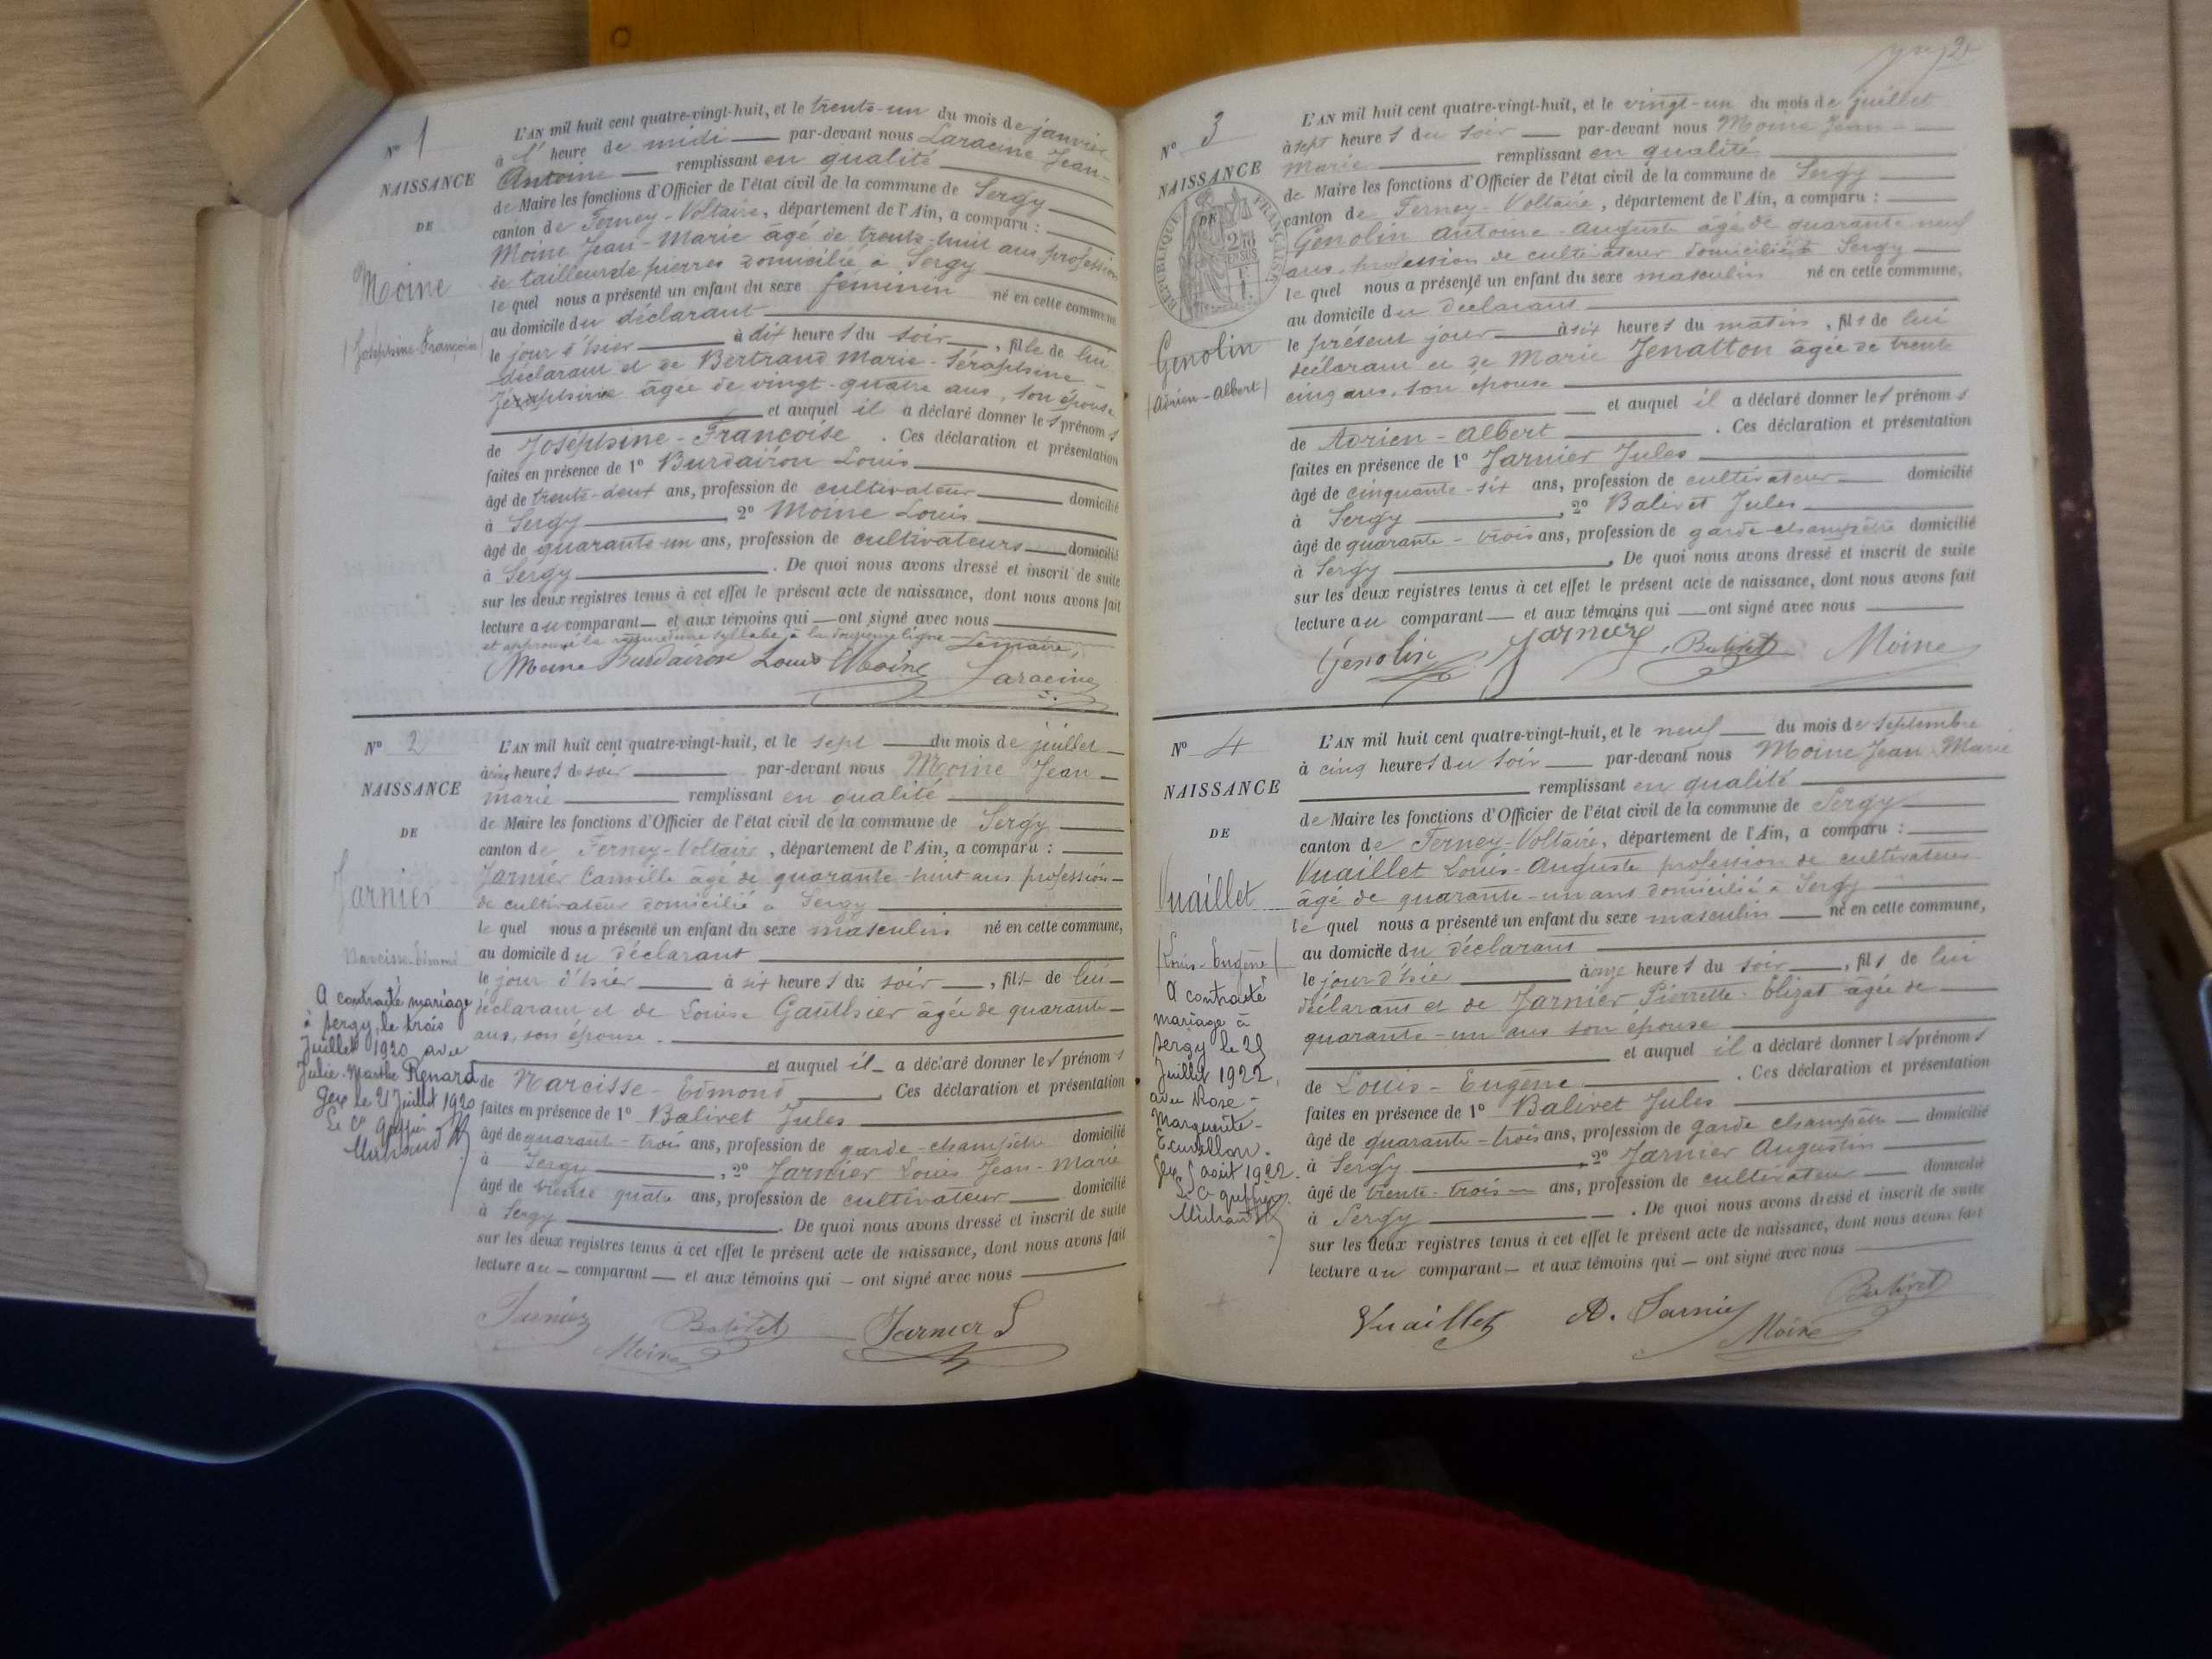 N° 1
NAISSANCE
DE
Moine
(Joséphine-Françoise)
L'AN mil huit cent quatre-vingt-huit, et le trente-un du mois de janvier
à l' heure de midi par-devant nous Laracine Jean-
Antoine remplissant en qualité
de Maire les fonctions d'Officier de l'état civil de la commune de Sergy
canton de Ferney-Voltaire, département de l'Ain, a comparu :
Moine Jean-Marie âgé de trente-huit ans profession
de tailleur de pierres domicilié à Sergy
le quel nous a présenté un enfant du sexe féminin né en cette commune
au domicile du déclarant
le jour d'hier à dix heures du soir, fille de lui
déclarant et de Bertrand Marie-Séraphine-
Joséphine âgée de vingt-quatre ans, son épouse
et auquel il a déclaré donner les prénoms
de Joséphine-Françoise. Ces déclaration et présentation
faites en présence de 1° Burdairon Louis
âgé de trente-deux ans, profession de cultivateur domicilié
à Sergy, 2° Moine Louis
âgé de quarante-un ans, profession de cultivateurs domicilié
à Sergy. De quoi nous avons dressé et inscrit de suite
sur les deux registres tenus à cet effet le présent acte de naissance, dont nous avons fait
lecture au comparant et aux témoins qui ont signé avec nous
et approuvé la syllabe à la douzième ligne
Moine Burdairon Louis Moine Laracine
N° 2
NAISSANCE
DE
Jarnier
Narcisse-Edmond
A contracté mariage
à Sergy, le trois
Juillet 1920 avec
Julie-Marthe Renard
Gex le 21 Juillet 1920
Le Cis Greffier
Michaud
L'AN mil huit cent quatre-vingt-huit, et le sept du mois de juillet
à cinq heures du soir par-devant nous Moine Jean-
Marie remplissant en qualité
de Maire les fonctions d'Officier de l'état civil de la commune de Sergy
canton de Ferney-Voltaire, département de l'Ain, a comparu :
Jarnier Camille âgé de quarante-huit ans profession
de cultivateur domicilié à Sergy
le quel nous a présenté un enfant du sexe masculin né en cette commune,
au domicile du déclarant
le jour d'hier à six heures du soir, fils de lui
déclarant et de Louise Gauthier âgée de quarante-
ans, son épouse.
et auquel il a déclaré donner les prénoms
de Narcisse-Edmond. Ces déclaration et présentation
faites en présence de 1° Balivet Jules
âgé de quarante-trois ans, profession de garde-champêtre domicilié
à Sergy, 2° Jarnier Louis Jean-Marie
âgé de trente quatre ans, profession de cultivateur domicilié
à Sergy. De quoi nous avons dressé et inscrit de suite
sur les deux registres tenus à cet effet le présent acte de naissance, dont nous avons fait
lecture au comparant et aux témoins qui ont signé avec nous
Jarnier Balivet Jarnier L
Moine
N° 3
NAISSANCE
DE
RÉPUBLIQUE FRANÇAISE
Genolin
(Adrien-Albert)
L'AN mil huit cent quatre-vingt-huit, et le vingt-un du mois de juillet
à sept heures du soir par-devant nous Moine Jean-
Marie remplissant en qualité
de Maire les fonctions d'Officier de l'état civil de la commune de Sergy
canton de Ferney-Voltaire, département de l'Ain, a comparu :
Genolin Antoine-Auguste âgé de quarante neuf
ans, profession de cultivateur domicilié à Sergy
le quel nous a présenté un enfant du sexe masculin né en cette commune,
au domicile du déclarant
le présent jour à six heures du matin, fils de lui
déclarant et de Marie Jenatton âgée de trente
cinq ans, son épouse
et auquel il a déclaré donner les prénoms
de Adrien-Albert. Ces déclaration et présentation
faites en présence de 1° Jarnier Jules
âgé de cinquante-six ans, profession de cultivateur domicilié
à Sergy, 2° Balivet Jules
âgé de quarante-trois ans, profession de garde-champêtre domicilié
à Sergy. De quoi nous avons dressé et inscrit de suite
sur les deux registres tenus à cet effet le présent acte de naissance, dont nous avons fait
lecture au comparant et aux témoins qui ont signé avec nous
Genolin Jarnier Balivet Moine
N° 4
NAISSANCE
DE
Vuaillet
(Louis-Eugène)
A contracté
mariage à
Sergy le 29
Juillet 1922,
avec Rose-
Marguerite-
Gex 5 août 1922.
Le Cis greffier
Michaud
L'AN mil huit cent quatre-vingt-huit, et le neuf du mois de septembre
à cinq heures du soir par-devant nous Moine Jean-Marie
remplissant en qualité
de Maire les fonctions d'Officier de l'état civil de la commune de Sergy
canton de Ferney-Voltaire, département de l'Ain, a comparu :
Vuaillet Louis-Auguste profession de cultivateur
âgé de quarante-un ans domicilié à Sergy
le quel nous a présenté un enfant du sexe masculin né en cette commune,
au domicile du déclarant
le jour d'hier à onze heures du soir, fils de lui
déclarant et de Jarnier Pierrette-Elizat âgée de
quarante-un ans son épouse
et auquel il a déclaré donner les prénoms
de Louis-Eugène. Ces déclaration et présentation
faites en présence de 1° Balivet Jules
âgé de quarante-trois ans, profession de garde champêtre domicilié
à Sergy, 2° Jarnier Augustin
âgé de trente-trois ans, profession de cultivateur domicilié
à Sergy. De quoi nous avons dressé et inscrit de suite
sur les deux registres tenus à cet effet le présent acte de naissance, dont nous avons fait
lecture au comparant et aux témoins qui ont signé avec nous
Balivet
Vuaillet A. Jarnier
Moine